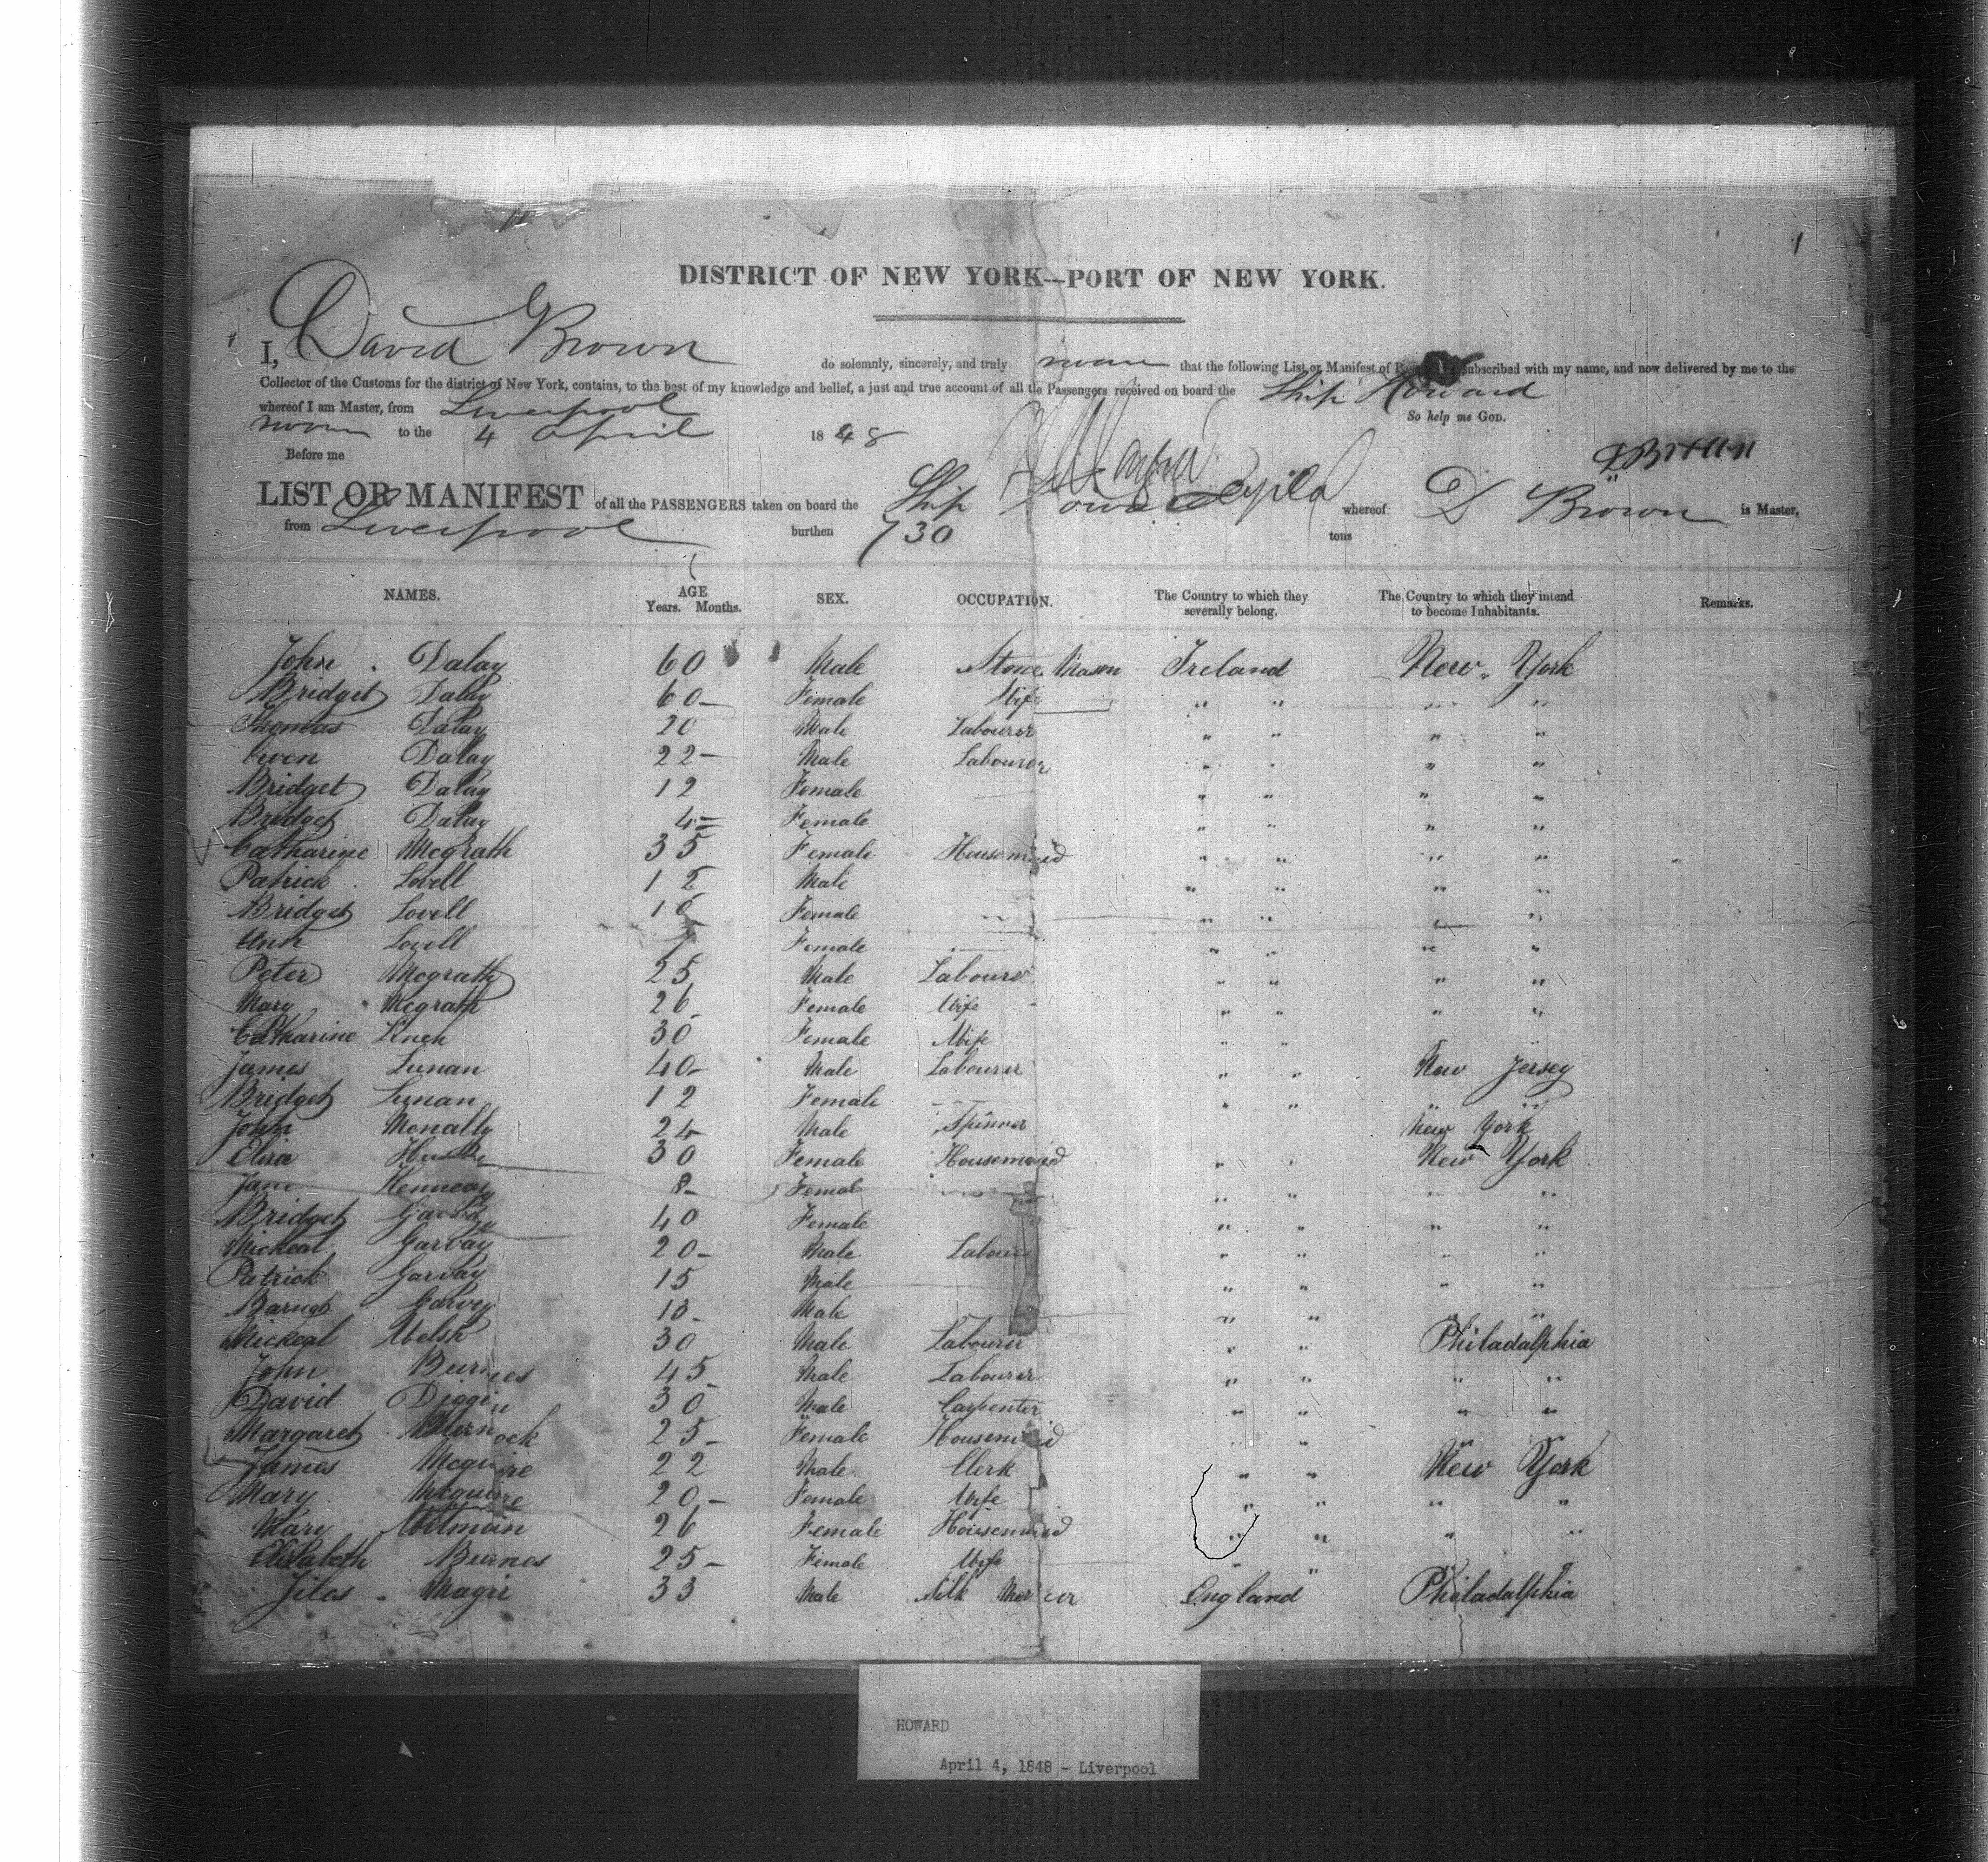 1
DISTRICT OF NEW YORK—PORT OF NEW YORK.
I, David Brown do solemnly, sincerely, and truly swear that the following List or Manifest of subscribed with my name, and now delivered by me to the
Collector of the Customs for the district of New York, contains, to the best of my knowledge and belief, a just and true account of all the Passengers received on board the Ship Howard
whereof I am Master, from Liverpool So help me GOD.
sworn to the 4 April 1848
Before me D Brown
LIST OR MANIFEST of all the PASSENGERS taken on board the Ship Howard whereof D Brown is Master,
from Liverpool burthen 730 tons
NAMES. AGE Years. Months. SEX. OCCUPATION. The Country to which they severally belong. The Country to which they intend to become Inhabitants. Remarks.
John Dalay 60 Male Stone Mason Ireland New York
Bridget Dalay 60 Female Wife " " " "
Thomas Dalay 20 Male Labourer " " " "
Owen Dalay 22 Male Labourer " " " "
Bridget Dalay 12 Female " " " "
Bridget Dalay 4 Female " " " "
Catharine Mcgrath 35 Female Housemaid " " " "
Patrick Lovell 12 Male " " " "
Bridget Lovell Female " " " "
Ann Lovell Female " " " "
Peter Mcgrath 25 Male Labourer " " " "
Mary Mcgrath 26 Female Wife " " " "
Catharine Linch 30 Female Wife " "
James Lunan 40 Male Labourer " " New Jersey
Bridget Lynan 12 Female " " " "
John Monally 24 Male Spinner New York
Eliza 30 Female Housemaid " " New York
Jane Kennedy 8 Female " " " "
Bridget Garvay 40 Female " " " "
Mickeal Garvay 20 Male Labourer " " " "
Patrick Garvay 15 Male " " " "
Barnet Garvey 13 Male " " " "
Mickeal Welsh 30 Male Labourer " " Philadalphia
John Burnes 45 Male Labourer " " " "
David Diggin 30 Male Carpenter " " " "
Margaret 25 Female Housemaid " " "
James Mcguire 22 Male Clerk " " New York
Mary Mcguire 20 Female Wife " " " "
Mary Witman 26 Female Housemaid " " " "
Elisabeth Burnes 25 Female Wife " "
Jilas Magir 33 Male Silk Mercer England Philadalphia
HOWARD
April 4, 1848 - Liverpool